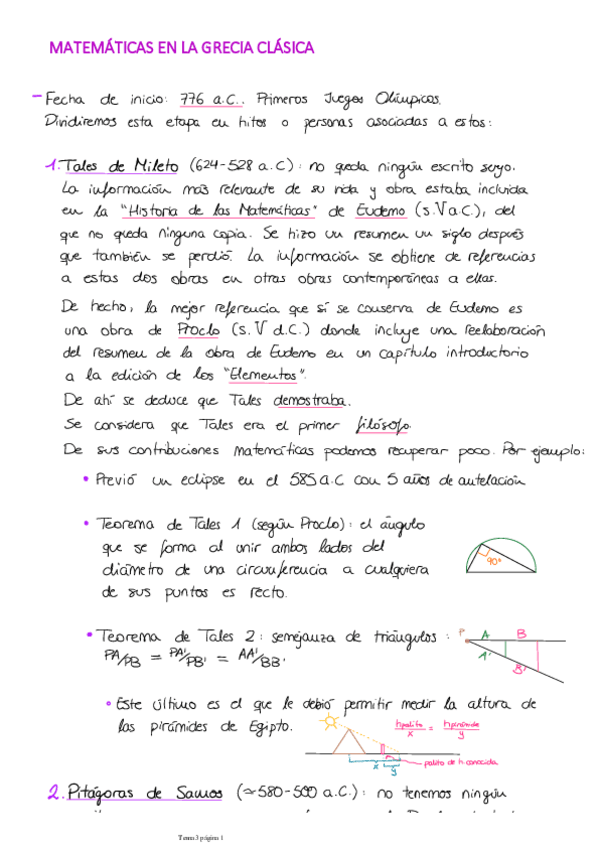 MATEMÁTICAS EN LA GRECIA CLÁSICA
- Fecha de inicio: 776 a.C.. Primeros Juegos Olímpicos.
Dividiremos esta etapa en hitos o personas asociadas a estos:
1. Tales de Mileto (624-528 a.C): no queda ningún escrito suyo.
La información más relevante de su vida y obra estaba incluida
en la "Historia de las Matemáticas" de Eudemo (s.V a.C.), del
que no queda ninguna copia. Se hizo un resumen un siglo después
que también se perdió. La información se obtiene de referencias
a estas dos obras en otras obras contemporáneas a ellas.
De hecho, la mejor referencia que sí se conserva de Eudemo es
una obra de Proclo (s.V d.C.) donde incluye una reelaboración
del resumen de la obra de Eudemo en un capítulo introductorio
a la edición de los "Elementos".
De ahí se deduce que Tales demostraba.
Se considera que Tales era el primer filósofo.
De sus contribuciones matemáticas podemos recuperar poco. Por ejemplo:
• Previó un eclipse en el 585 a.C con 5 años de antelación
• Teorema de Tales 1 (según Proclo): el ángulo
que se forma al unir ambos lados del
diámetro de una circunferencia a cualquiera
de sus puntos es recto.
90°
• Teorema de Tales 2: semejanza de triángulos:
PA/PB = PA'/PB' = AA'/BB'
P A B
A'
B'
• Este último es el que le debió permitir medir la altura de
las pirámides de Egipto.
hpalito/x = hpirámide/y
x y
palito de h conocida
2. Pitágoras de Samos (≃580-500 a.C.): no tenemos ningún
Tema3 página 1